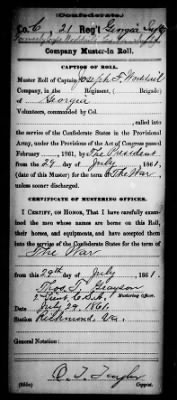 (Confederate.)
Co. C, 21 Reg't Georgia Inf.
Company Muster-in Roll.
CAPTION OF ROLL.
Muster Roll of Captain Joseph F.
Company, in the Regiment, ( Brigade)
of Georgia
Volunteers, commanded by Col.
, called into
the service of the Confederate States in the Provisional
Army, under the Provisions of the Act of Congress passed
February , 1861, by The President
from the 29 day of July , 1861,
(date of this Muster) for the term of The War,
unless sooner discharged.
CERTIFICATE OF MUSTERING OFFICER.
I CERTIFY, ON HONOR, That I have carefully exam-
ined the men whose names are borne on this Roll,
their horses, and equipments, and have accepted them
into the service of the Confederate States for the term of
The War,
from this 29th day of July, 1861.
Thos. T. Grayson
Mustering Officer.
Date July 29, 1861.
Station Richmond, Va.
General Notation:
Copyist.